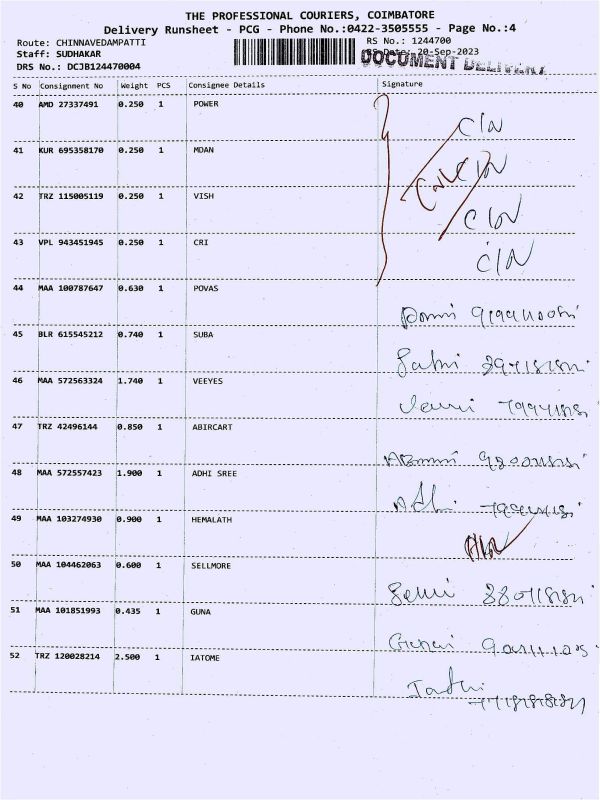 THE PROFESSIONAL COURIERS, COIMBATORE
Delivery Runsheet - PCG - Phone No.:0422-3505555 - Page No.:4
Route: CHINNAVEDAMPATTI RS No.: 1244700
Staff: SUDHAKAR RS Date: 20-Sep-2023
DRS No.: DCJB124470004 DOCUMENT DELIVERY
S No Consignment No Weight PCS Consignee Details Signature
40 AMD 27337491 0.250 1 POWER C/N
41 KUR 695358170 0.250 1 MDAN C/N
42 TRZ 115005119 0.250 1 VISH C/N
43 VPL 943451945 0.250 1 CRI C/N
44 MAA 100787647 0.630 1 POVAS
45 BLR 615545212 0.740 1 SUBA
46 MAA 572563324 1.740 1 VEEYES
47 TRZ 42496144 0.850 1 ABIRCART
48 MAA 572557423 1.900 1 ADHI SREE Adhi
49 MAA 103274930 0.900 1 HEMALATH
50 MAA 104462063 0.600 1 SELLMORE
51 MAA 101851993 0.435 1 GUNA
52 TRZ 120028214 2.500 1 IATOME